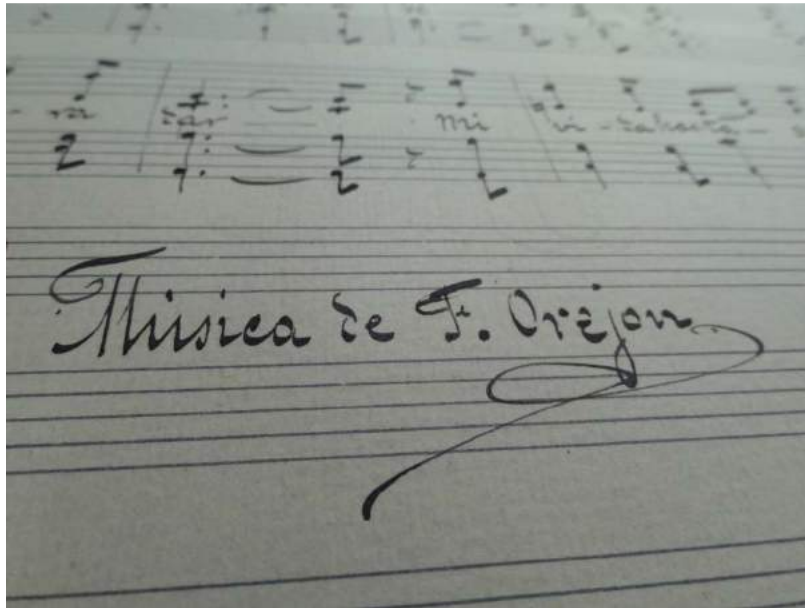 mi
Música de F. Orejon